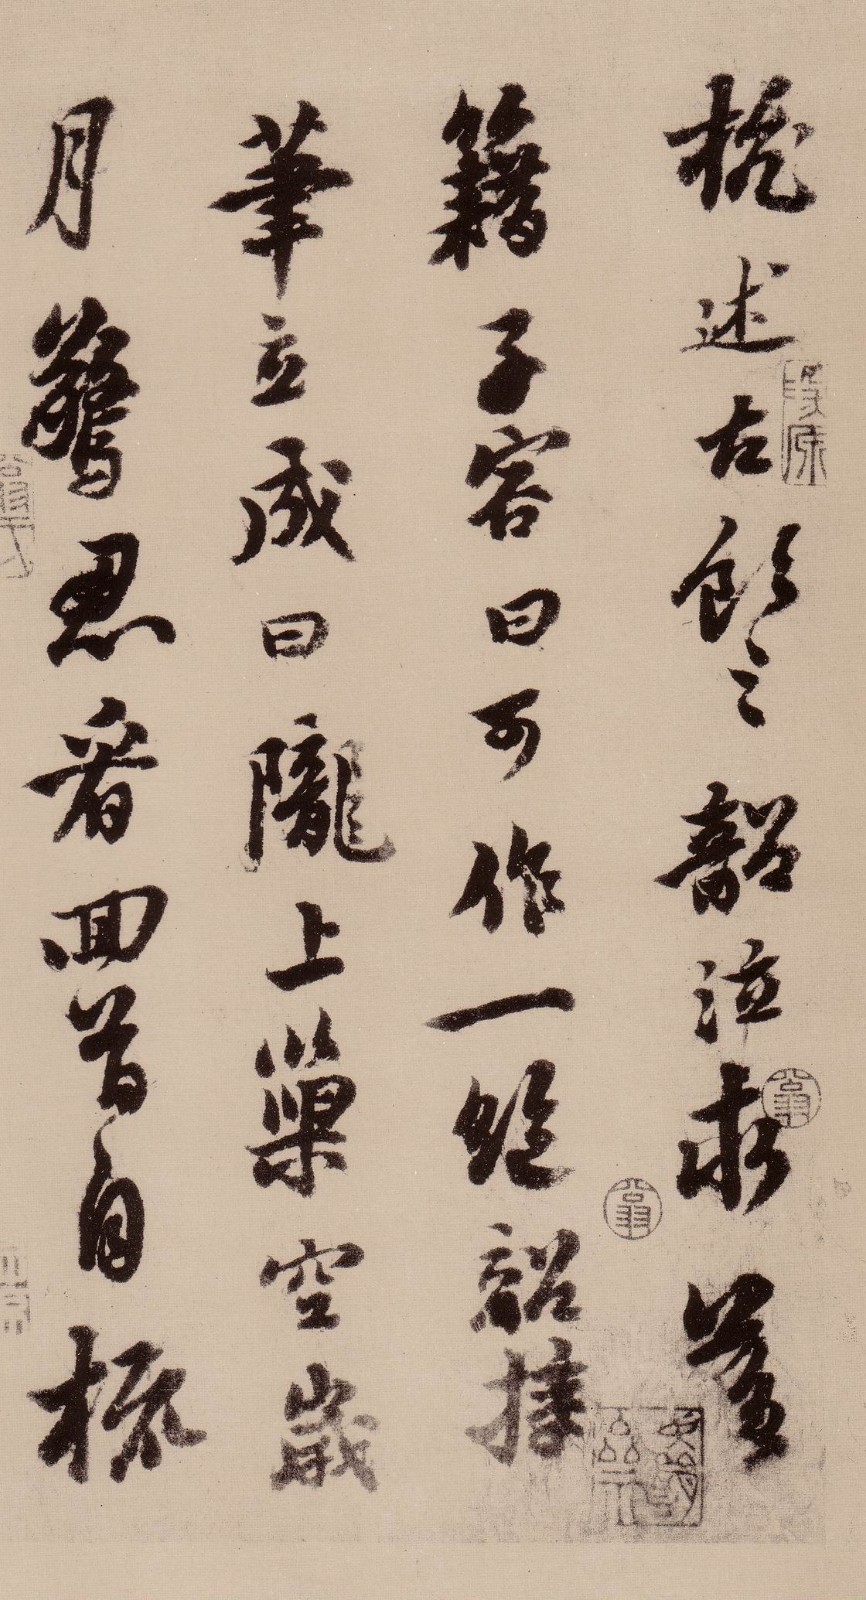 杭述古飲之韶泣求落
籍子容曰可作一絶韶援
筆立成曰隴上巢空歲
月驚忍看回首自梳